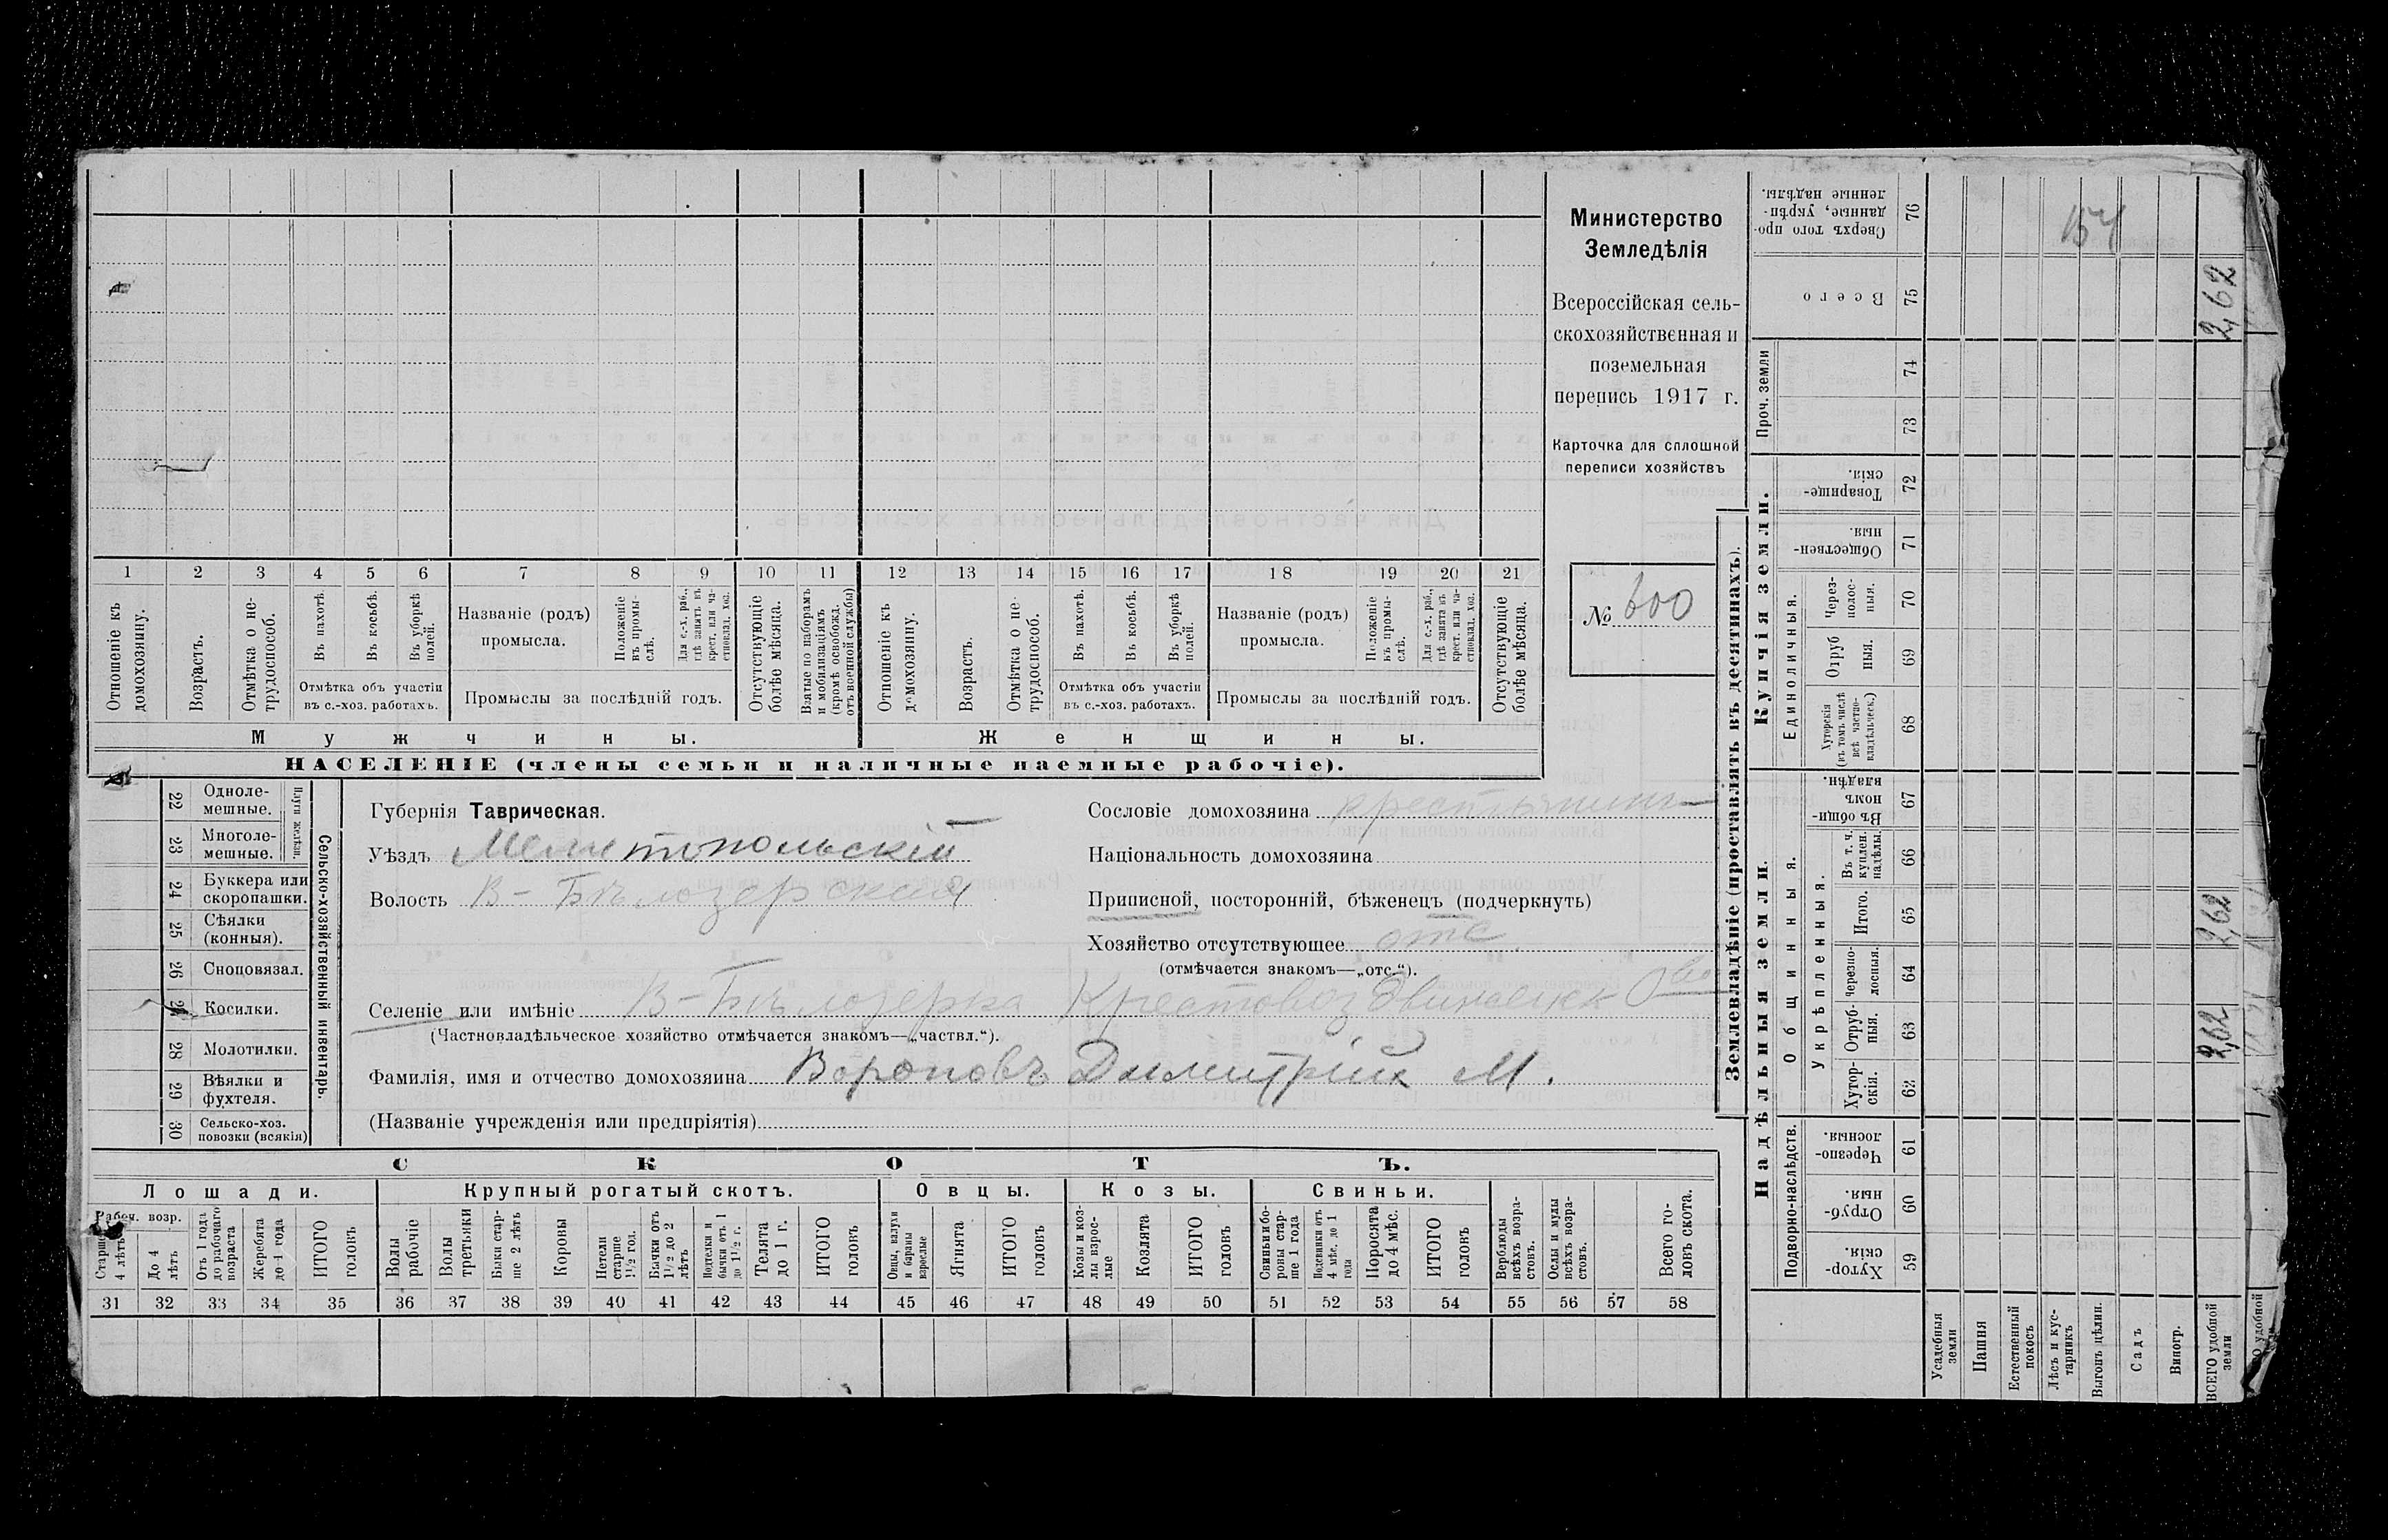 Министерство
Земледѣлія
Всероссійская сель-
скохозяйственная и
поземельная
перепись 1917 г.
Карточка для сплошной
переписи хозяйствъ
№ 600
1 2 3 4 5 6 7 8 9 10 11 12 13 14 15 16 17 18 19 20 21
Отношеніе къ домохозяину.
Возрастъ.
Отмѣтка о не-трудоспособ.
Въ пахотѣ.
Въ косьбѣ.
Въ уборкѣ полей.
Отмѣтка объ участіи
въ с.-хоз. работахъ.
Названіе (родъ)
промысла.
Положеніе въ промы-слѣ.
Для с.-х. раб., гдѣ занятъ въ крест. или ча-стновлад. хоз.
Промыслы за послѣдній годъ.
Отсутствующіе болѣе мѣсяца.
Взятые по наборамъ и мобилизаціямъ (кромѣ освобожд. отъ военной службы)
Отношеніе къ домохозяину.
Возрастъ.
Отмѣтка о не-трудоспособ.
Въ пахотѣ.
Въ косьбѣ.
Въ уборкѣ полей.
Отмѣтка объ участіи
въ с.-хоз. работахъ.
Названіе (родъ)
промысла.
Положеніе въ промы-слѣ.
Для с.-х. раб., гдѣ занята въ крест. или ча-стновлад. хоз.
Промыслы за послѣдній годъ.
Отсутствующіе болѣе мѣсяца.
Мужчины.
Женщины.
НАСЕЛЕНІЕ (члены семьи и наличные наемные рабочіе).
Сельско-хозяйственный инвентарь.
Плуги желѣзн.
22 Одноле-мешные.
23 Многоле-мешные.
24 Буккера или скоропашки.
25 Сѣялки (конныя).
26 Сноповязал.
27 Косилки.
28 Молотилки.
29 Вѣялки и фухтеля.
30 Сельско-хоз. повозки (всякія)
Губернія Таврическая.
Уѣздъ Мелитопольскій
Волость В-Бѣлозерская
Сословіе домохозяина крестьянинъ
Національность домохозяина
Приписной, посторонній, бѣженецъ (подчеркнуть)
Хозяйство отсутствующее отс.
(отмѣчается знакомъ—„отс.“).
Селеніе или имѣніе В-Бѣлозерка
(Частновладѣльческое хозяйство отмѣчается знакомъ—„частвл.“).
Фамилія, имя и отчество домохозяина Вороновъ Димитрій М.
(Названіе учрежденія или предпріятія)
СКОТЪ.
Лошади. Крупный рогатый скотъ. Овцы. Козы. Свиньи.
Рабоч. возр.
Старше 4 лѣтъ
До 4 лѣтъ
Отъ 1 года до рабочаго возраста
Жеребята до 1 года
ИТОГО головъ
Волы рабочіе
Волы третьяки
Быки стар-ше 2 лѣтъ
Коровы
Нетели старше 1½ год.
Бычки отъ 1½ до 2 лѣтъ
Подтелки и бычки отъ 1 до 1½ г.
Телята до 1 г.
ИТОГО головъ
Овцы, валухи и бараны взрослые
Ягнята
ИТОГО головъ
Козы и коз-лы взрос-лые
Козлята
ИТОГО головъ
Свиньи и бо-ровы стар-ше 1 года
Подсвинки отъ 4 мѣс. до 1 года
Поросята до 4 мѣс.
ИТОГО головъ
Верблюды всѣхъ возра-стовъ.
Ослы и мулы всѣхъ возра-стовъ.
Всего го-ловъ скота.
31 32 33 34 35 36 37 38 39 40 41 42 43 44 45 46 47 48 49 50 51 52 53 54 55 56 57 58
Землевладѣніе (проставлять въ десятинахъ).
Надѣльныя земли.
Подворно-наслѣдств.
Хутор-скія. 59
Отруб-ныя. 60
Черезпо-лосныя. 61
Общинныя.
Укрѣпленныя.
Хутор-скія. 62
Отруб-ныя. 63
Черезпо-лосныя. 64
Итого. 65
Въ т. ч. куплен. надѣлы. 66
Въ общи-номъ владѣн. 67
Купчія земли.
Единоличныя.
Хуторскія (въ томъ числѣ всѣ частно-владѣльческ.) 68
Отруб ныя. 69
Через-полос-ныя. 70
Обществен-ныя. 71
Товарище-скія. 72
Проч. земли
73 74
Всего 75
Сверхъ того про-данные, укрѣп-ленные надѣлы. 76
Усадебныя земли
Пашня
Естественный покосъ
Лѣсъ и кус-тарникъ
Выгонъ цѣлин.
Садъ
Виногр.
ВСЕГО удобной земли
2,62
2,62
2,62